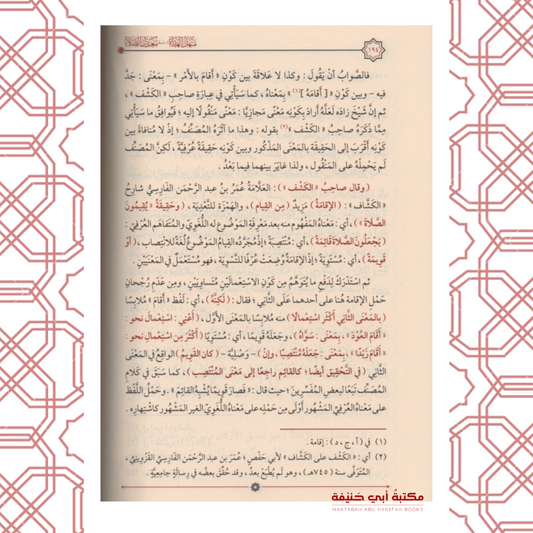 ١٩٤
فالصَّوابُ أنْ يَقولَ : وكذا لا عَلاقةَ بين كَوْنِ « أَقامَ بالأَمْر » - بِمَعْنَى : جَدَّ
فيه - وبين كَوْنِ « [ أَقامَهُ ](١) » بِمَعْناهُ ، كما سَيَأْتِي في عِبارةِ صاحبِ « الكَشْف » ،
ثم إنَّ شَيْخَ زادَه لَعَلَّهُ أرادَ بِكَوْنِه مَعْنًى مَجازِيًّا : مَعْنًى مَنْقُولًا إليه ؛ فَيُوافِقُ ما سَيَأْتِي
مِمَّا ذَكَرَهُ صاحبُ « الكَشْف »(٢) بقوله : وهذا ما آثَرَهُ المُصَنِّفُ ؛ إذ لا مُنافاةَ بين
كَوْنِه أَقْرَبَ إلى الحَقِيقة بالمَعْنى المَذْكورِ وبين كَوْنِه حَقِيقةً عُرْفِيَّةً ، لَكِنَّ المُصَنِّفَ
لَم يَحْمِلْهُ على المَنْقُول ، ولذا غايَرَ بينهما فيما بَعْدُ .
( وقال صاحبُ « الكَشْف » ) : العَلَّامةُ عُمَرُ بنُ عبد الرَّحْمَن الفارِسِيُّ شارِحُ
« الكَشَّاف » : ( الإقامةُ ) مَزِيدُ ( مِن القِيام ) ، والهَمْزة للتَّعْدِية ، ( وحَقِيقةُ «يُقِيمُونَ
الصَّلاةَ » ) ، أي : مَعْناهُ المَفْهُومِ منه بعد مَعْرِفةِ المَوْضُوعِ له اللُّغَوِيِّ والمُتَفاهَمِ العُرْفِيِّ :
( يَجْعَلُونَ الصَّلاةَ قائِمةً ) ، أي : مُنْتَصِبةً ؛ إذ مُجَرَّدُه القِيامُ المَوْضُوعُ لُغةً للانْتِصاب ، ( أو
قَوِيمةً ) ، أي : مُسْتَوِيةً ؛ إذ الإقامةُ وُضِعَتْ عُرْفًا للتَّسْوِية ، فهو مُسْتَعْمَلٌ في المَعْنَيَيْنِ .
ثم اسْتَدْرَكَ لِدَفْعِ ما يُتَوَهَّمُ مِن كَوْنِ الاسْتِعْمالَيْنِ مُتَساوِيَيْنِ ، ومِن عَدَمِ رُجْحانِ
حَمْلِ الإقامة هُنا على أحدهما على الثَّانِي ؛ فقال : ( لَكِنَّهُ ) ، أي : لَفْظَ « أَقامَ » مُلابِسًا
( بالمَعْنى الثَّانِي أَكْثَرُ اسْتِعْمالًا ) منه مُلابِسًا بالمَعْنى الأوَّل ، ( أَعْنِي : اسْتِعْمالَ نحو :
« أَقامَ العُوْدَ » ، بِمَعْنى : سَوَّاهُ ) ، وجَعَلَهُ قَوِيمًا ، أي : مُسْتَوِيًا ( أَكْثَرَ مِن اسْتِعْمالِ نحو :
« أَقامَ زَيْدًا » ، بِمَعْنى : جَعَلَهُ مُنْتَصِبًا ، وإنْ ) - وَصْلِيَّةٌ - ( كان القَوِيمُ ) الواقِعُ في المَعْنى
الثَّانِي ( في التَّحْقِيقِ أيضًا ؛ كالقائِمِ راجِعًا إلى مَعْنى المُنْتَصِب ) ، كما سَبَقَ في كَلام
المُصَنِّفِ تَبَعًا لبعضِ المُفَسِّرِينَ ؛ حيث قال : « فصارَ قَوِيمًا يُشْبِهُ القائِم » . وحَمْلُ اللَّفْظ
على مَعْناهُ العُرْفِيِّ المَشْهُورِ أَوْلَى مِن حَمْلِه على مَعْناهُ اللُّغَوِيِّ الغيرِ المَشْهُورِ كاشْتِهارِه .
(١) في ( أ ، ج ، د ) : إقامة .
(٢) أي : « الكَشْف على الكَشَّاف » لأبي حَفْصٍ ؛ عُمَرَ بن عبد الرَّحْمَن الفارِسِيِّ القَزْوِينِيِّ ،
المُتَوَفَّى سنة ( ٧٤٥هـ ) ، وهو لَم يُطْبَعْ بعدُ ، وقد حُقِّقَ بعضُه في رِسالةٍ جامِعِيَّةٍ .
مكتبة أبي حنيفة
MAKTABAH ABU HANIFAH BOOKS